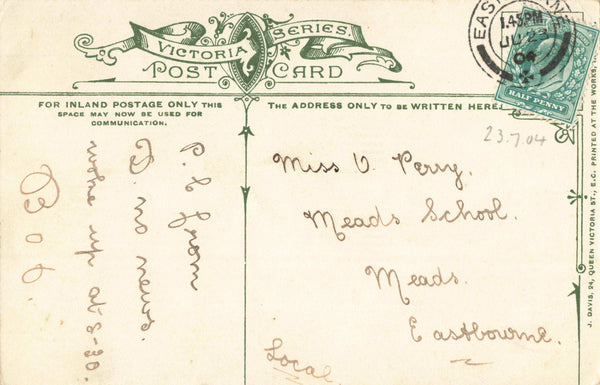 VICTORIA SERIES.
POST CARD
FOR INLAND POSTAGE ONLY THIS
SPACE MAY NOW BE USED FOR
COMMUNICATION.
THE ADDRESS ONLY TO BE WRITTEN HERE.
1.45 PM
JU 23
04
HALF PENNY
23.7.04
P.C from
B. no news.
woke up at 8-30.
Bob.
Miss V. Perry.
Meads School.
Meads.
Eastbourne.
Local
J. DAVIS, 24, QUEEN VICTORIA ST., E.C. PRINTED AT THE WORKS,